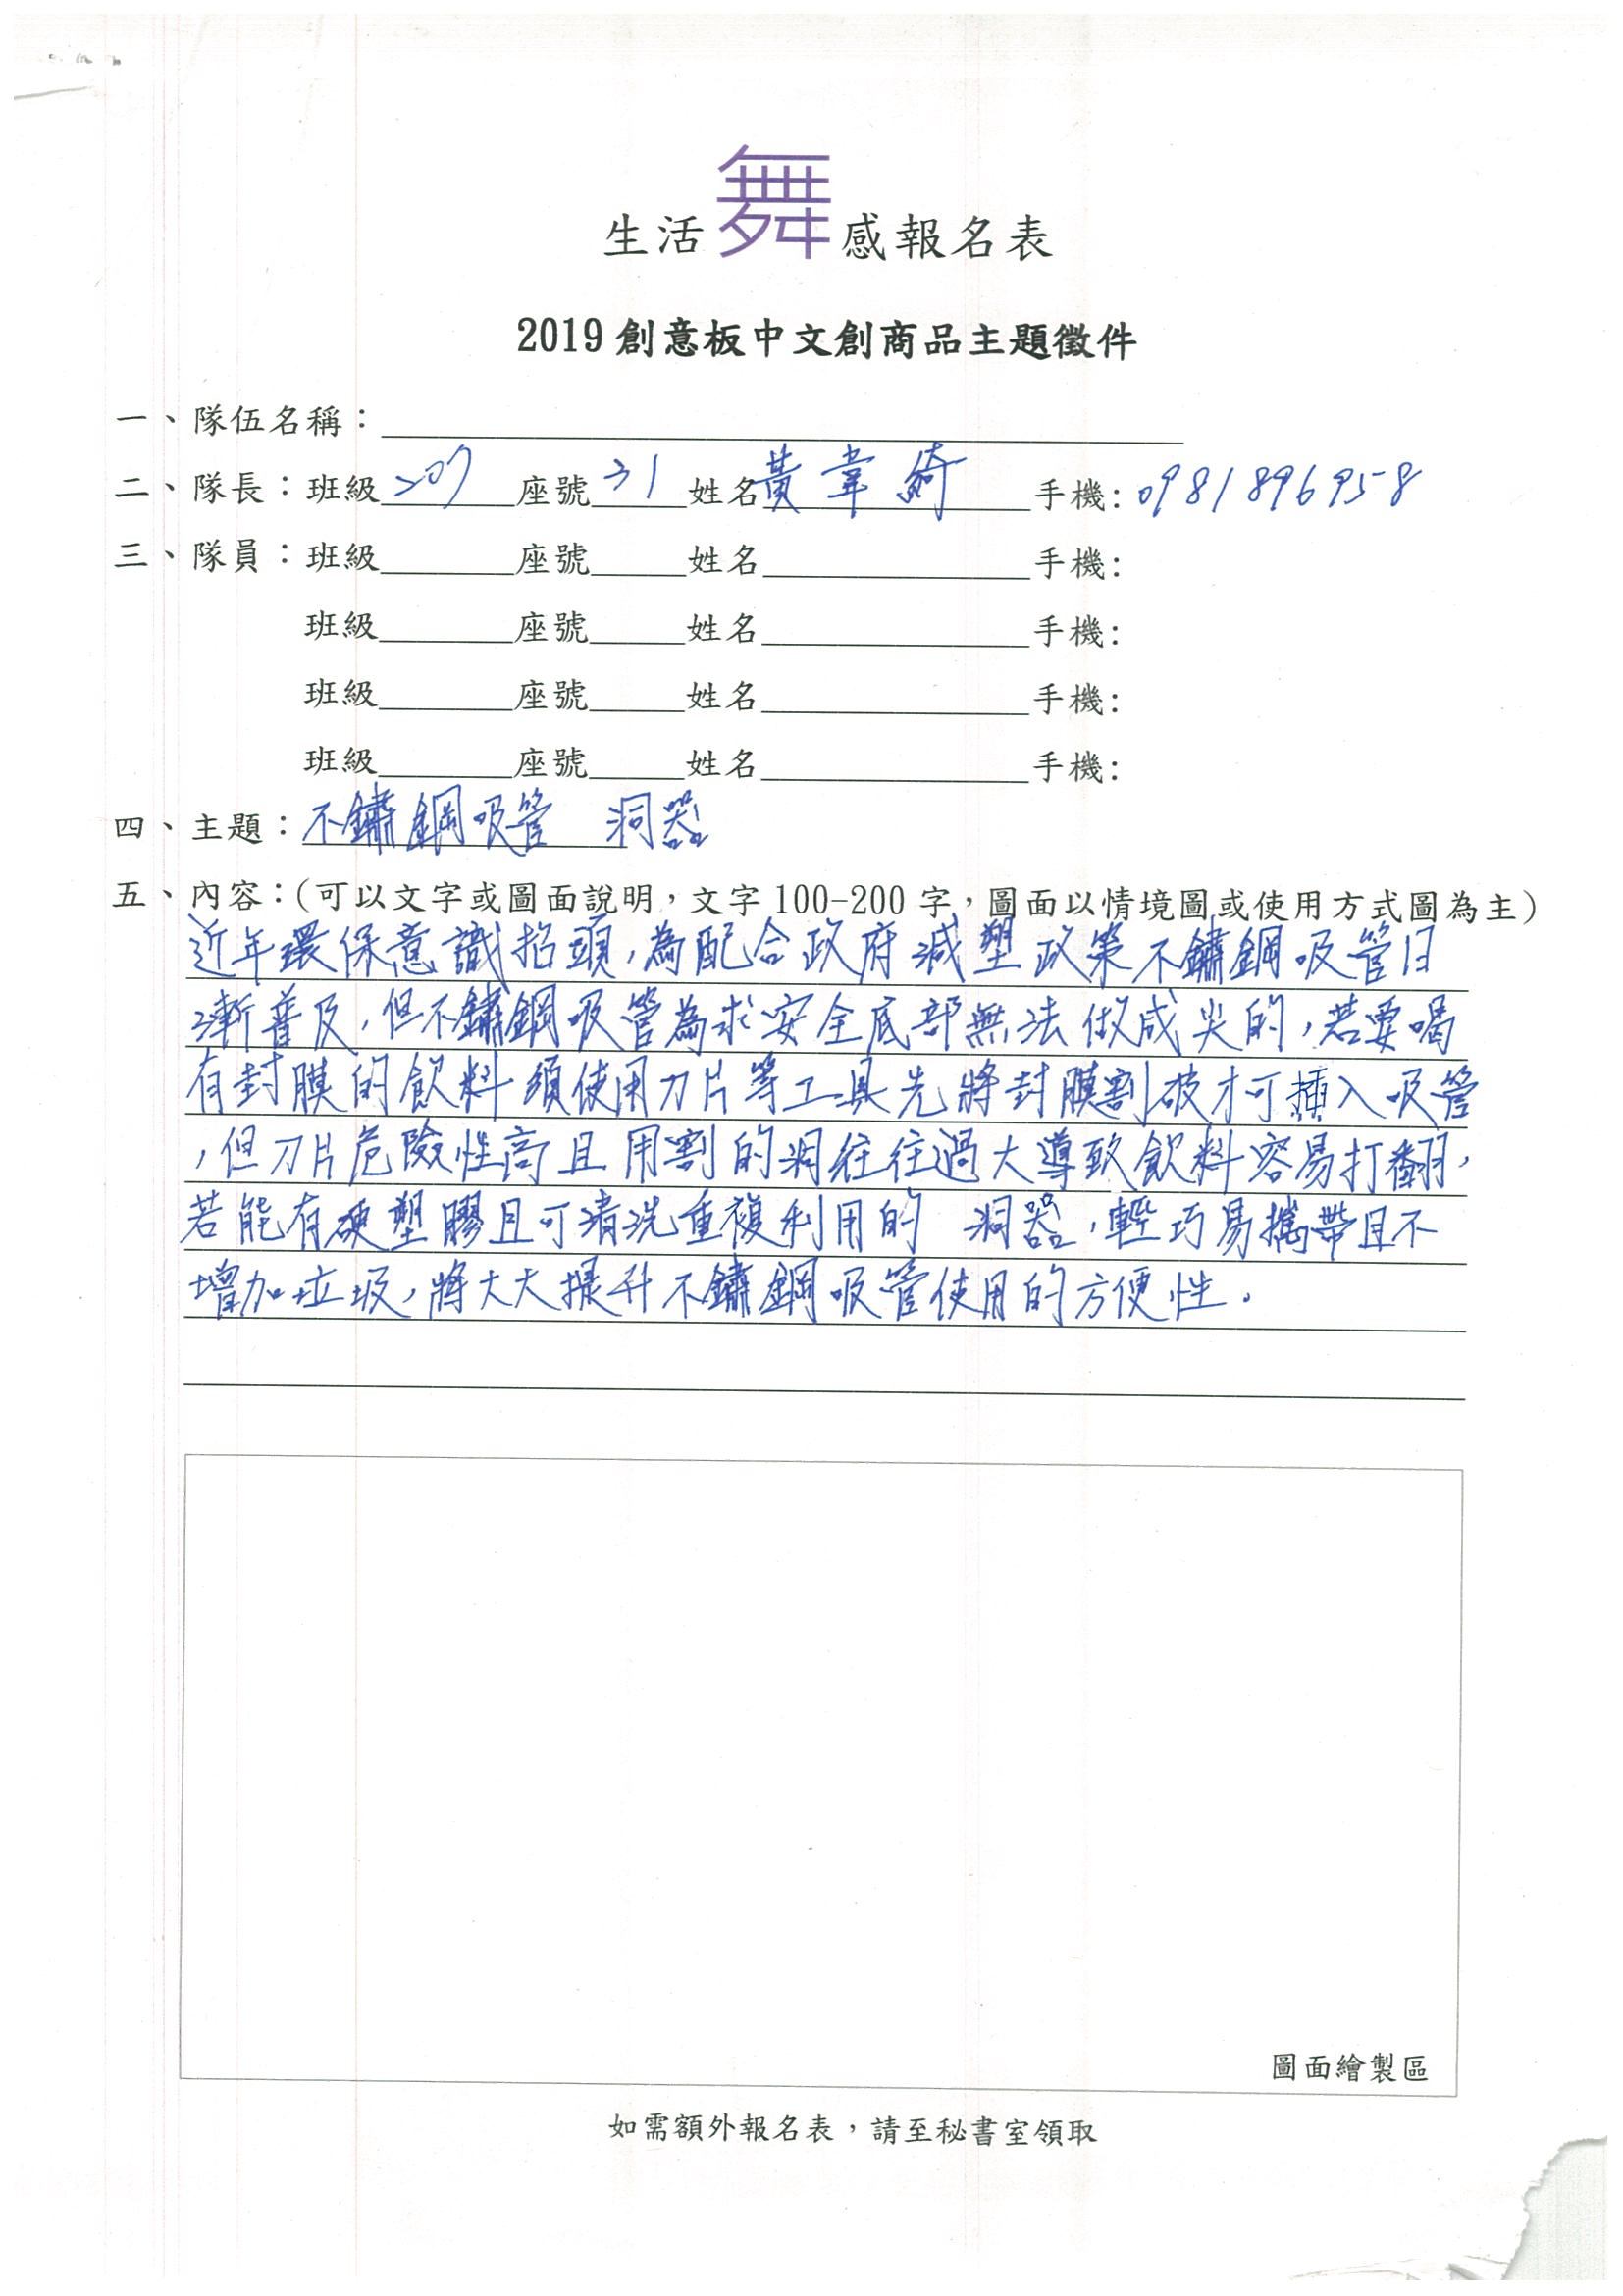 生活舞感報名表
2019 創意板中文創商品主題徵件
一、隊伍名稱：
二、隊長：班級207座號31姓名黃韋綺手機：0981896958
三、隊員：班級 座號 姓名 手機：
班級 座號 姓名 手機：
班級 座號 姓名 手機：
班級 座號 姓名 手機：
四、主題：不鏽鋼吸管 洞器
五、內容：（可以文字或圖面說明，文字 100-200 字，圖面以情境圖或使用方式圖為主）
近年環保意識抬頭，為配合政府減塑政策不鏽鋼吸管日
漸普及，但不鏽鋼吸管為求安全底部無法做成尖的，若要喝
有封膜的飲料須使用刀片等工具先將封膜割破才可插入吸管
，但刀片危險性高且用割的洞往往過大導致飲料容易打翻，
若能有硬塑膠且可清洗重複利用的 洞器，輕巧易攜帶且不
增加垃圾，將大大提升不鏽鋼吸管使用的方便性。
圖面繪製區
如需額外報名表，請至秘書室領取